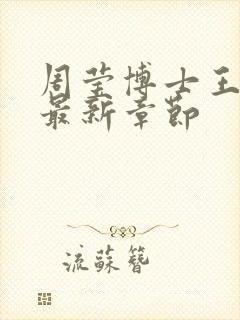 周莹博士王
最新章节
流蘇簪